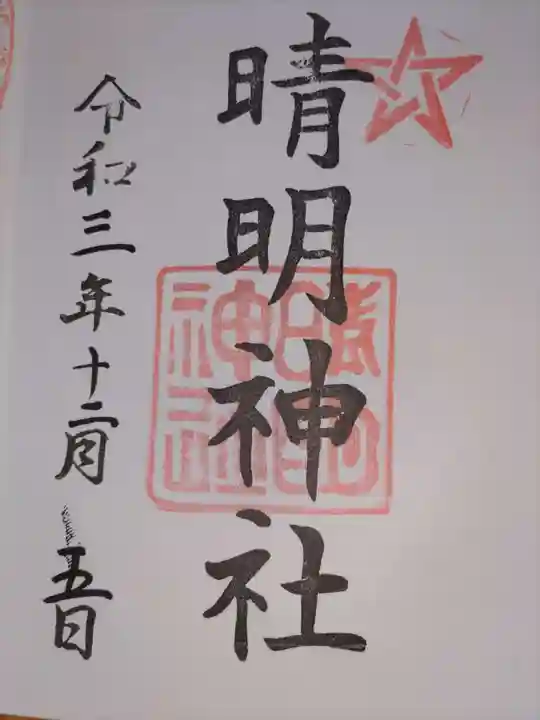 晴明神社
晴明神社
令和三年十二月五日